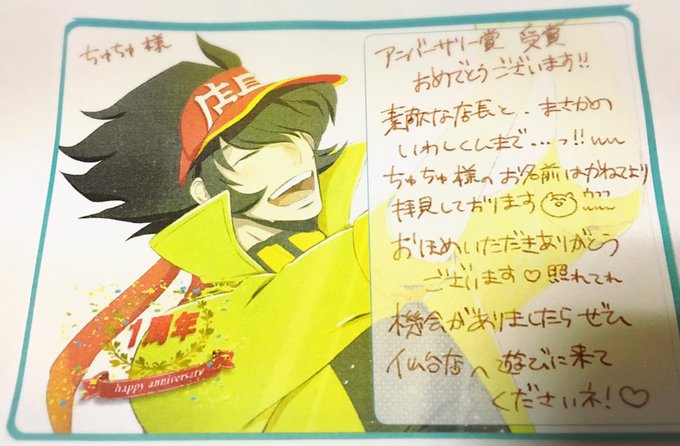 ちゅちゅ 様
店長
1周年
happy anniversary
アニバーサリー賞 受賞
おめでとうございます!!
素敵な店長と、まさかの
いわしくんまで…っ!!
ちゅちゅ様のお名前はかねてより
拝見しております
おほめいただきありがとう
ございます♡ 照れてれ
機会がありましたらぜひ
仙台店へ遊びに来て
くださいネ!♡